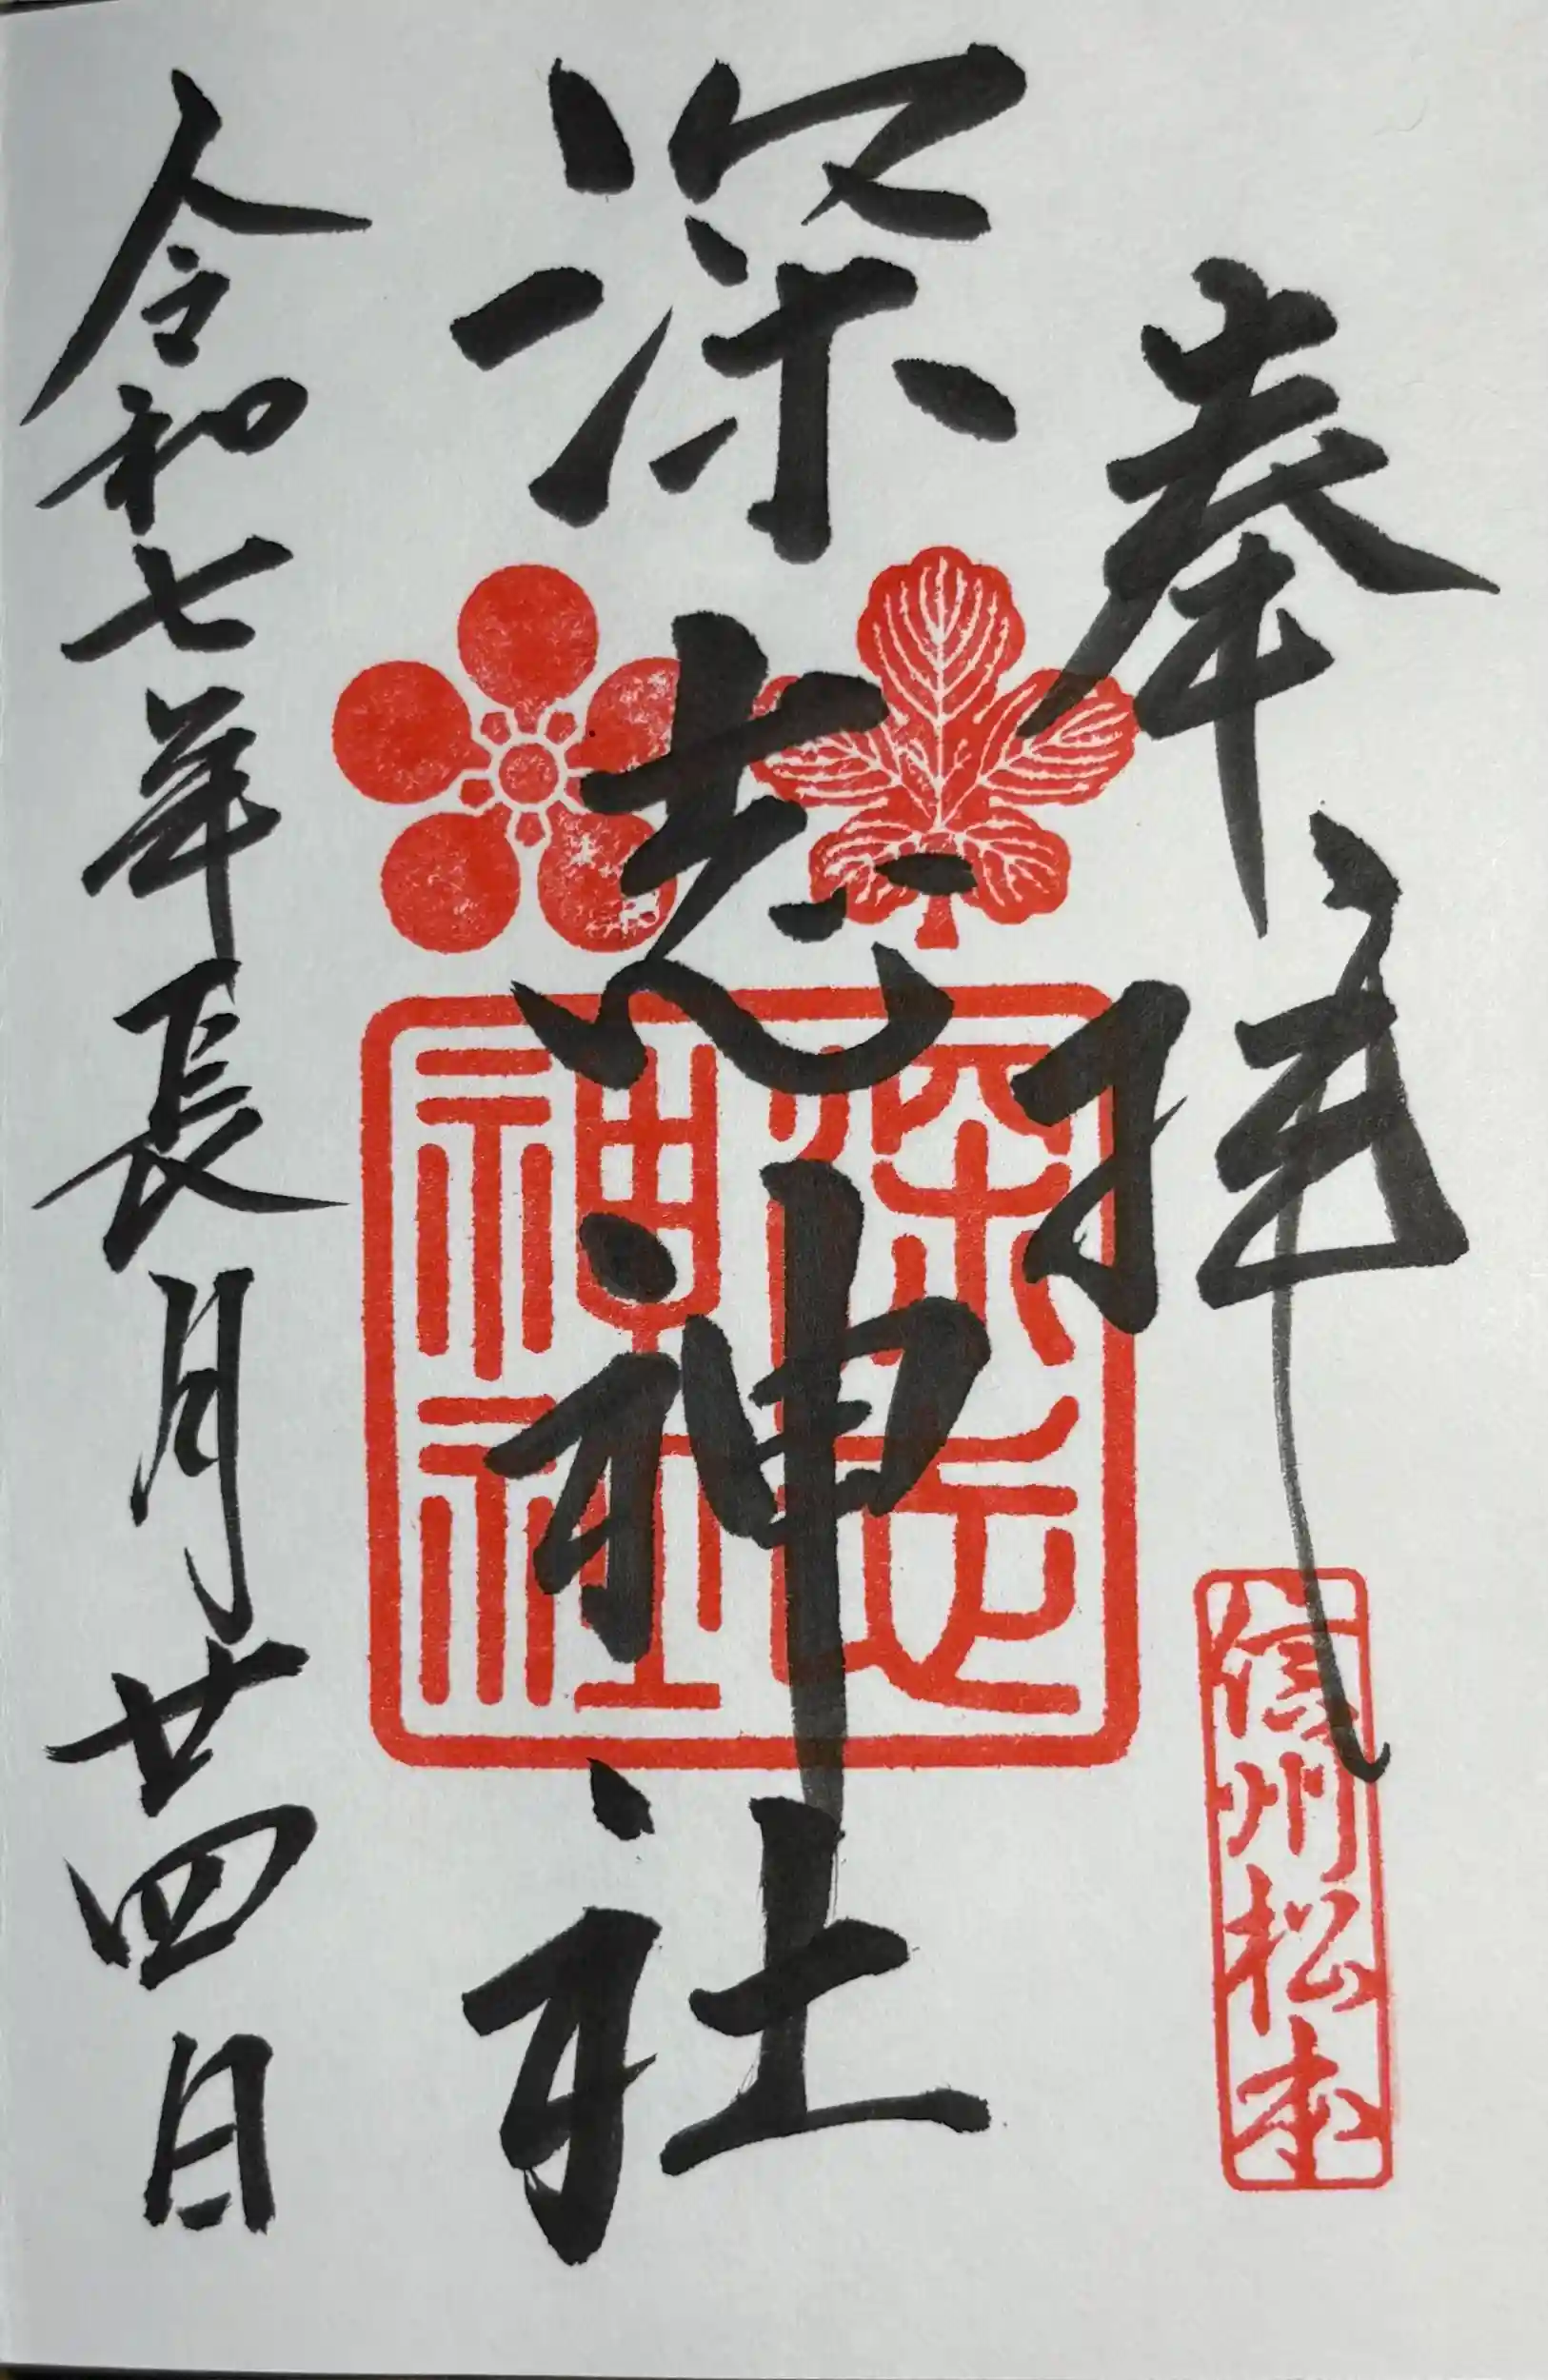 奉拝
信州松本
深志神社
深志
神社
令和七年長月廿四日